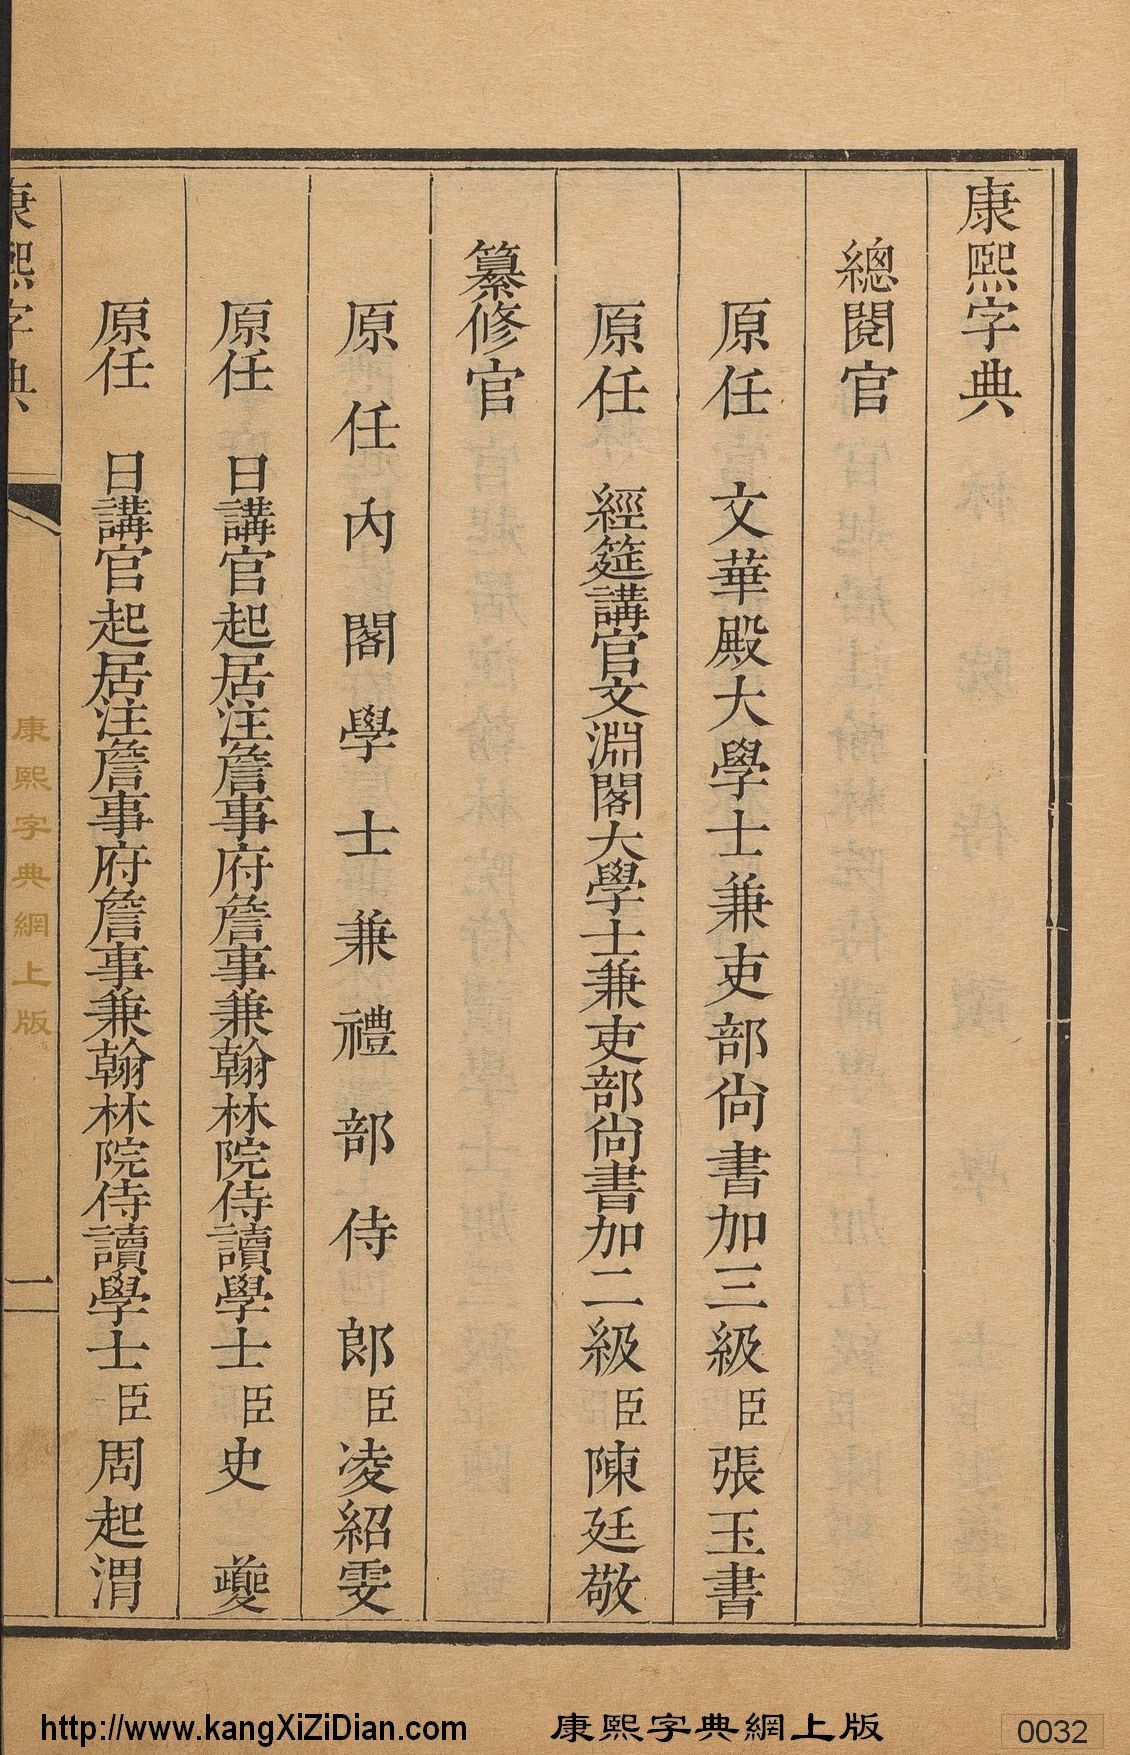 康熙字典
總閱官
原任文華殿大學士兼吏部尚書加三級臣張玉書
原任經筵講官文淵閣大學士兼吏部尚書加二級臣陳廷敬
纂修官
原任內閣學士兼禮部侍郎臣凌紹雯
原任日講官起居注詹事府詹事兼翰林院侍讀學士臣史夔
原任日講官起居注詹事府詹事兼翰林院侍讀學士臣周起渭
康熙字典
一
康熙字典網上版
http://www.kangXiZiDian.com
康熙字典網上版
0032